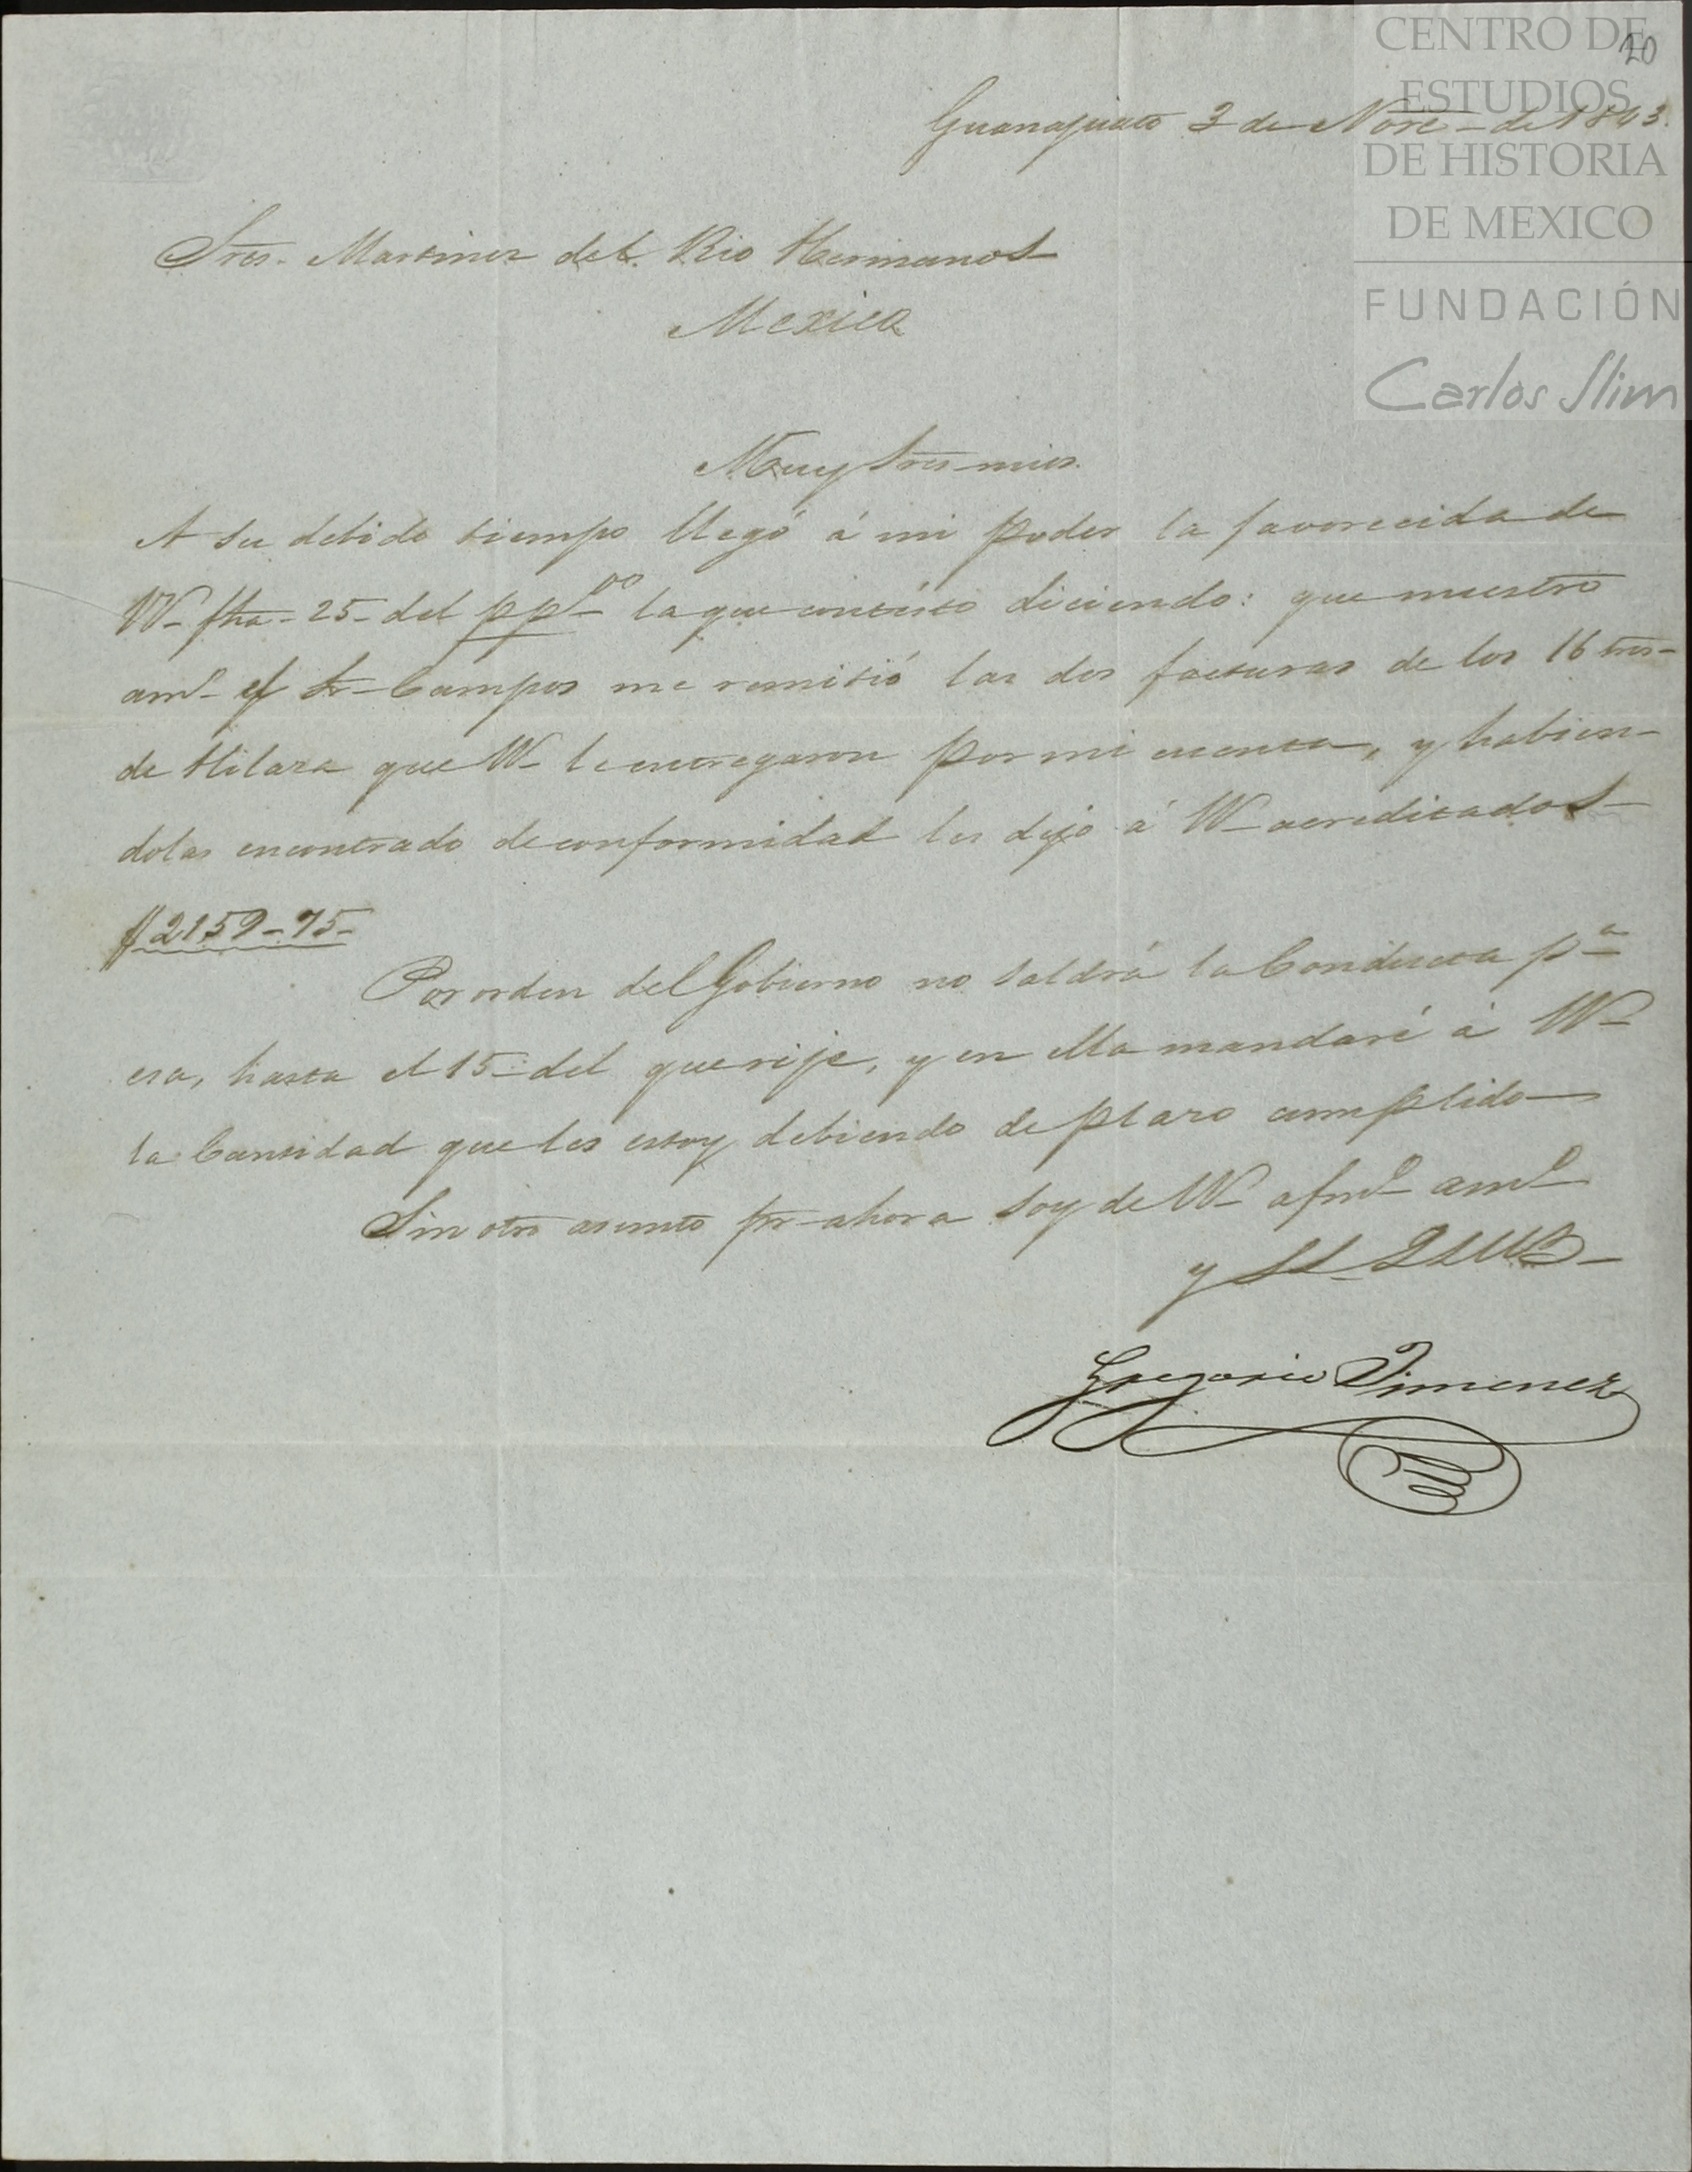 CENTRO DE
ESTUDIOS
DE HISTORIA
DE MEXICO
FUNDACIÓN
Carlos Slim
20
Guanajuato 3 de Nove - de 1863.
Sres. Martinez del Rio Hermanos
Mexico
Muy Sres mios.
A su debido tiempo llegó á mi poder la favorecida de
VV- fha - 25 - del pp.do la que contesto diciendo: que nuestro
amo- el Sr- Campos me remitió las dos facturas de los 16 trcs-
de Hilaza que VV- le entregaron por mi cuenta, y habien-
dolas encontrado de conformidad les dejo á VV- acreditados -
$ 2159-75-
Por orden del Gobierno no saldrá la Conducta pa
esa, hasta el 15- del que rije, y en ella mandaré á VV-
la Cantidad que les estoy debiendo de plazo cumplido -
Sin otro asunto pr- ahora soy de VV- afmo- amo-
y SS- Q SS MM B -
Gregorio Jimenez